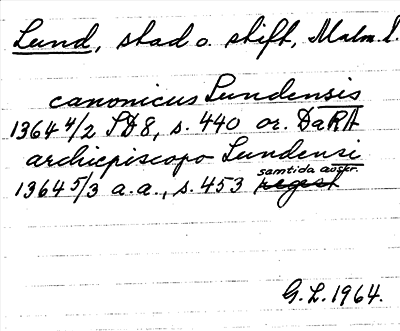 Lund, stad o. stift, Malm. l.
canonicus Lundensis
1364 4/2 SD8, s. 440 or. DaRA
archiepiscopo Lundensi
1364 5/3 a.a., s. 453 samtida avskr. regest
G. L. 1964.